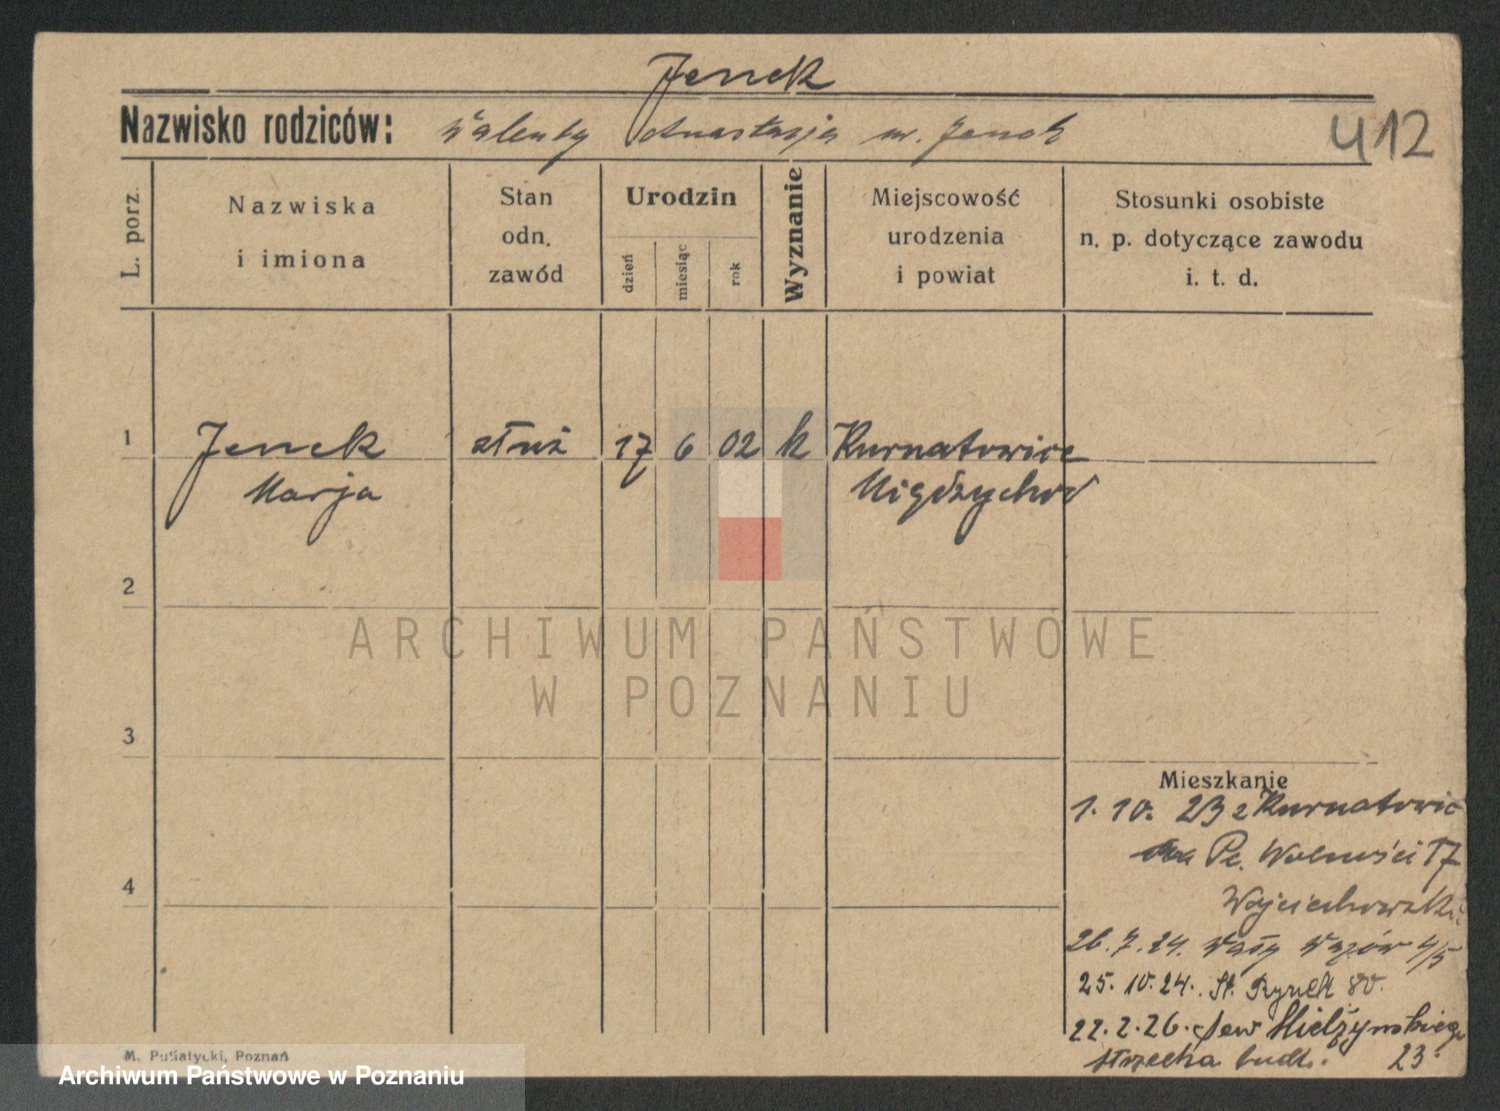 Jenek
Nazwisko rodziców: Walenty Anastazja m. Jenek
412
L. porz.
Nazwiska
i imiona
Stan
odn.
zawód
Urodzin
dzień
miesiąc
rok
Wyznanie
Miejscowość
urodzenia
i powiat
Stosunki osobiste
n. p. dotyczące zawodu
i. t. d.
1 Jenek służ 17 6 02 k Kurnatowice
Marja Międzychod
2
ARCHIWUM PAŃSTWOWE
W POZNANIU
3
Mieszkanie
1. 10. 23 z Kurnatowic
Pl. Wolności 17
Wojciechowski
4
26. 7. 24. Wały Wazów 4/5
25. 10. 24. St. Rynek 80.
22. 2. 26. Sew Mielżyńskiego
strzecha budl. 23.
M. Putiatycki, Poznań
Archiwum Państwowe w Poznaniu